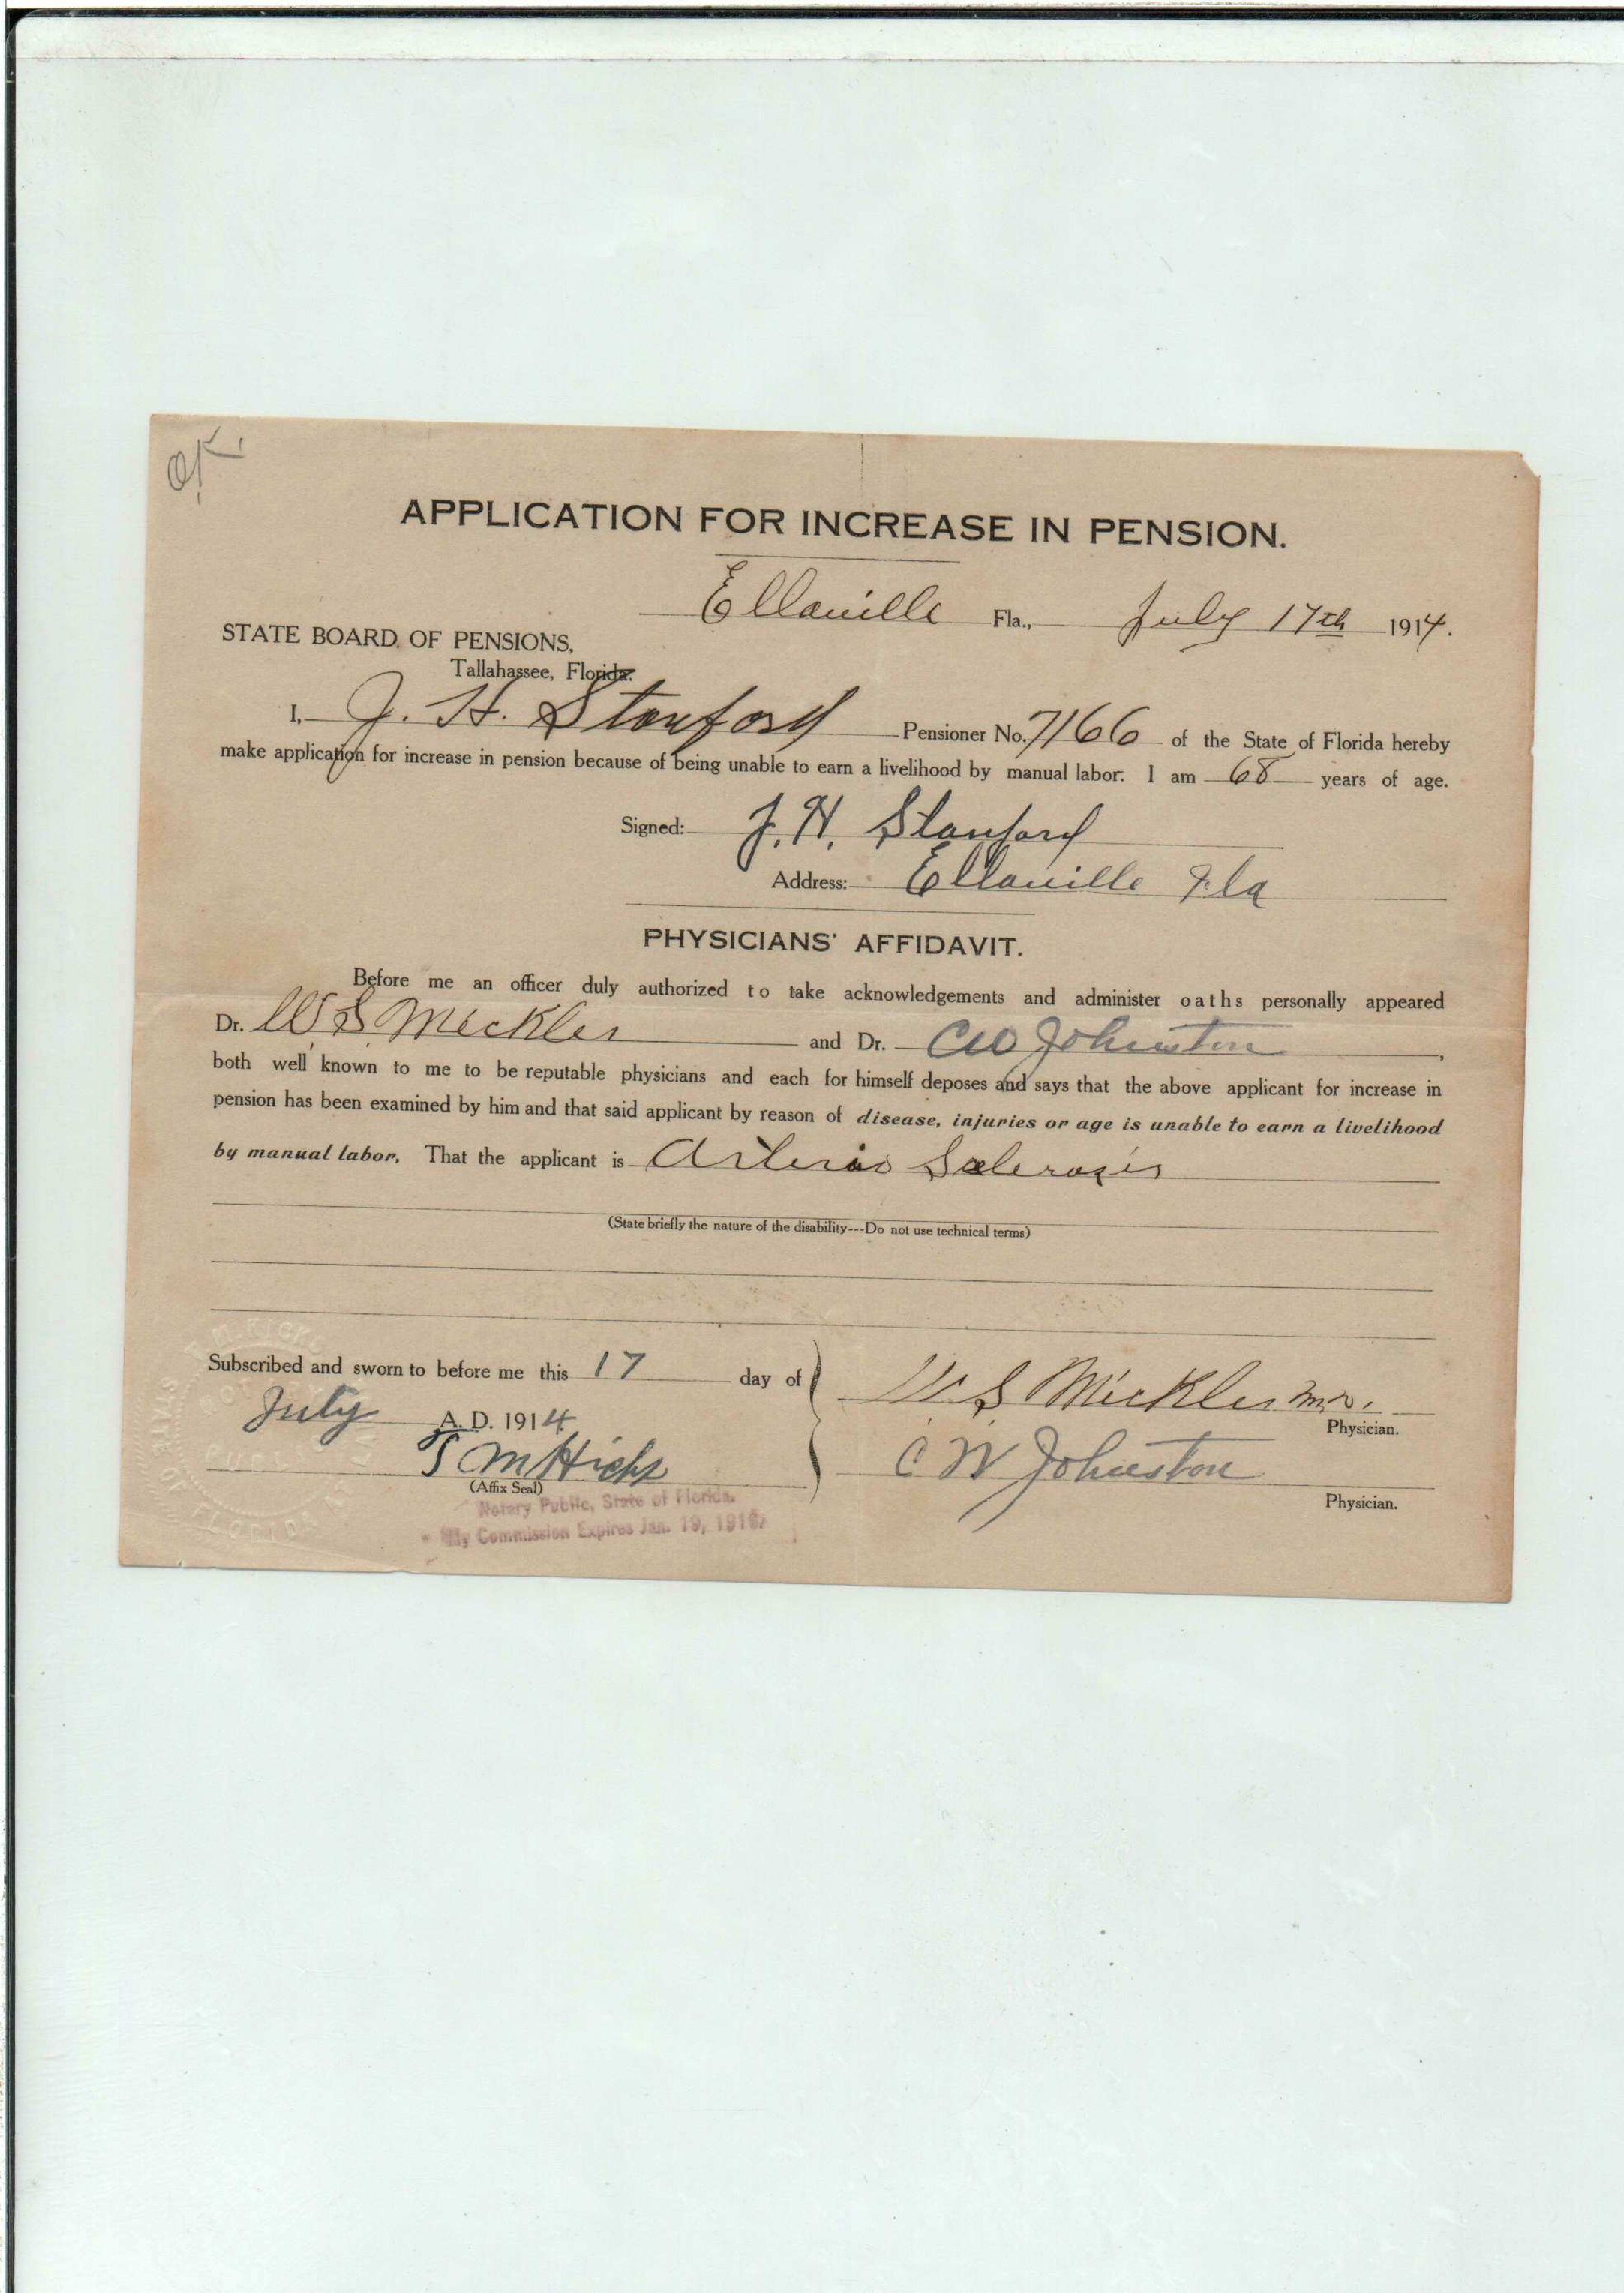 O.K.
APPLICATION FOR INCREASE IN PENSION.
Ellaville Fla., July 17th 1914.
STATE BOARD OF PENSIONS,
Tallahassee, Florida.
I, J. H. Stanford Pensioner No. 7166 of the State of Florida hereby
make application for increase in pension because of being unable to earn a livelihood by manual labor. I am 68 years of age.
Signed: J. H. Stanford
Address: Ellaville Fla
PHYSICIANS' AFFIDAVIT.
Before me an officer duly authorized to take acknowledgements and administer oaths personally appeared
Dr. W S Mickler and Dr. CW Johnston,
both well known to me to be reputable physicians and each for himself deposes and says that the above applicant for increase in
pension has been examined by him and that said applicant by reason of disease, injuries or age is unable to earn a livelihood
by manual labor. That the applicant is Arterio Sclerosis
(State briefly the nature of the disability---Do not use technical terms)
Subscribed and sworn to before me this 17 day of
July A. D. 1914
W S Mickler M.D.
Physician.
M Hicks
(Affix Seal)
C W Johnston
Physician.
Notary Public, State of Florida.
My Commission Expires Jan. 19,